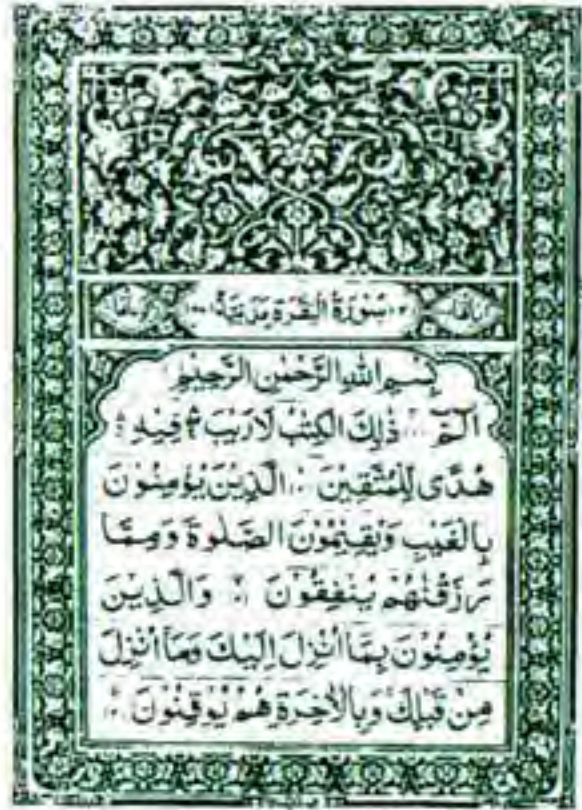 سُوْرَةُ الْبَقَرَةِ مَدَنِيَّةٌ
بِسْمِ اللّٰهِ الرَّحْمٰنِ الرَّحِيْمِ
الٓمّٓ ذٰلِكَ الْكِتٰبُ لَا رَيْبَ ۛ فِيْهِ ۛ
هُدًى لِّلْمُتَّقِيْنَ الَّذِيْنَ يُؤْمِنُوْنَ
بِالْغَيْبِ وَيُقِيْمُوْنَ الصَّلٰوةَ وَمِمَّا
رَزَقْنٰهُمْ يُنْفِقُوْنَ وَالَّذِيْنَ
يُؤْمِنُوْنَ بِمَآ اُنْزِلَ اِلَيْكَ وَمَآ اُنْزِلَ
مِنْ قَبْلِكَ وَبِالْاٰخِرَةِ هُمْ يُوْقِنُوْنَ